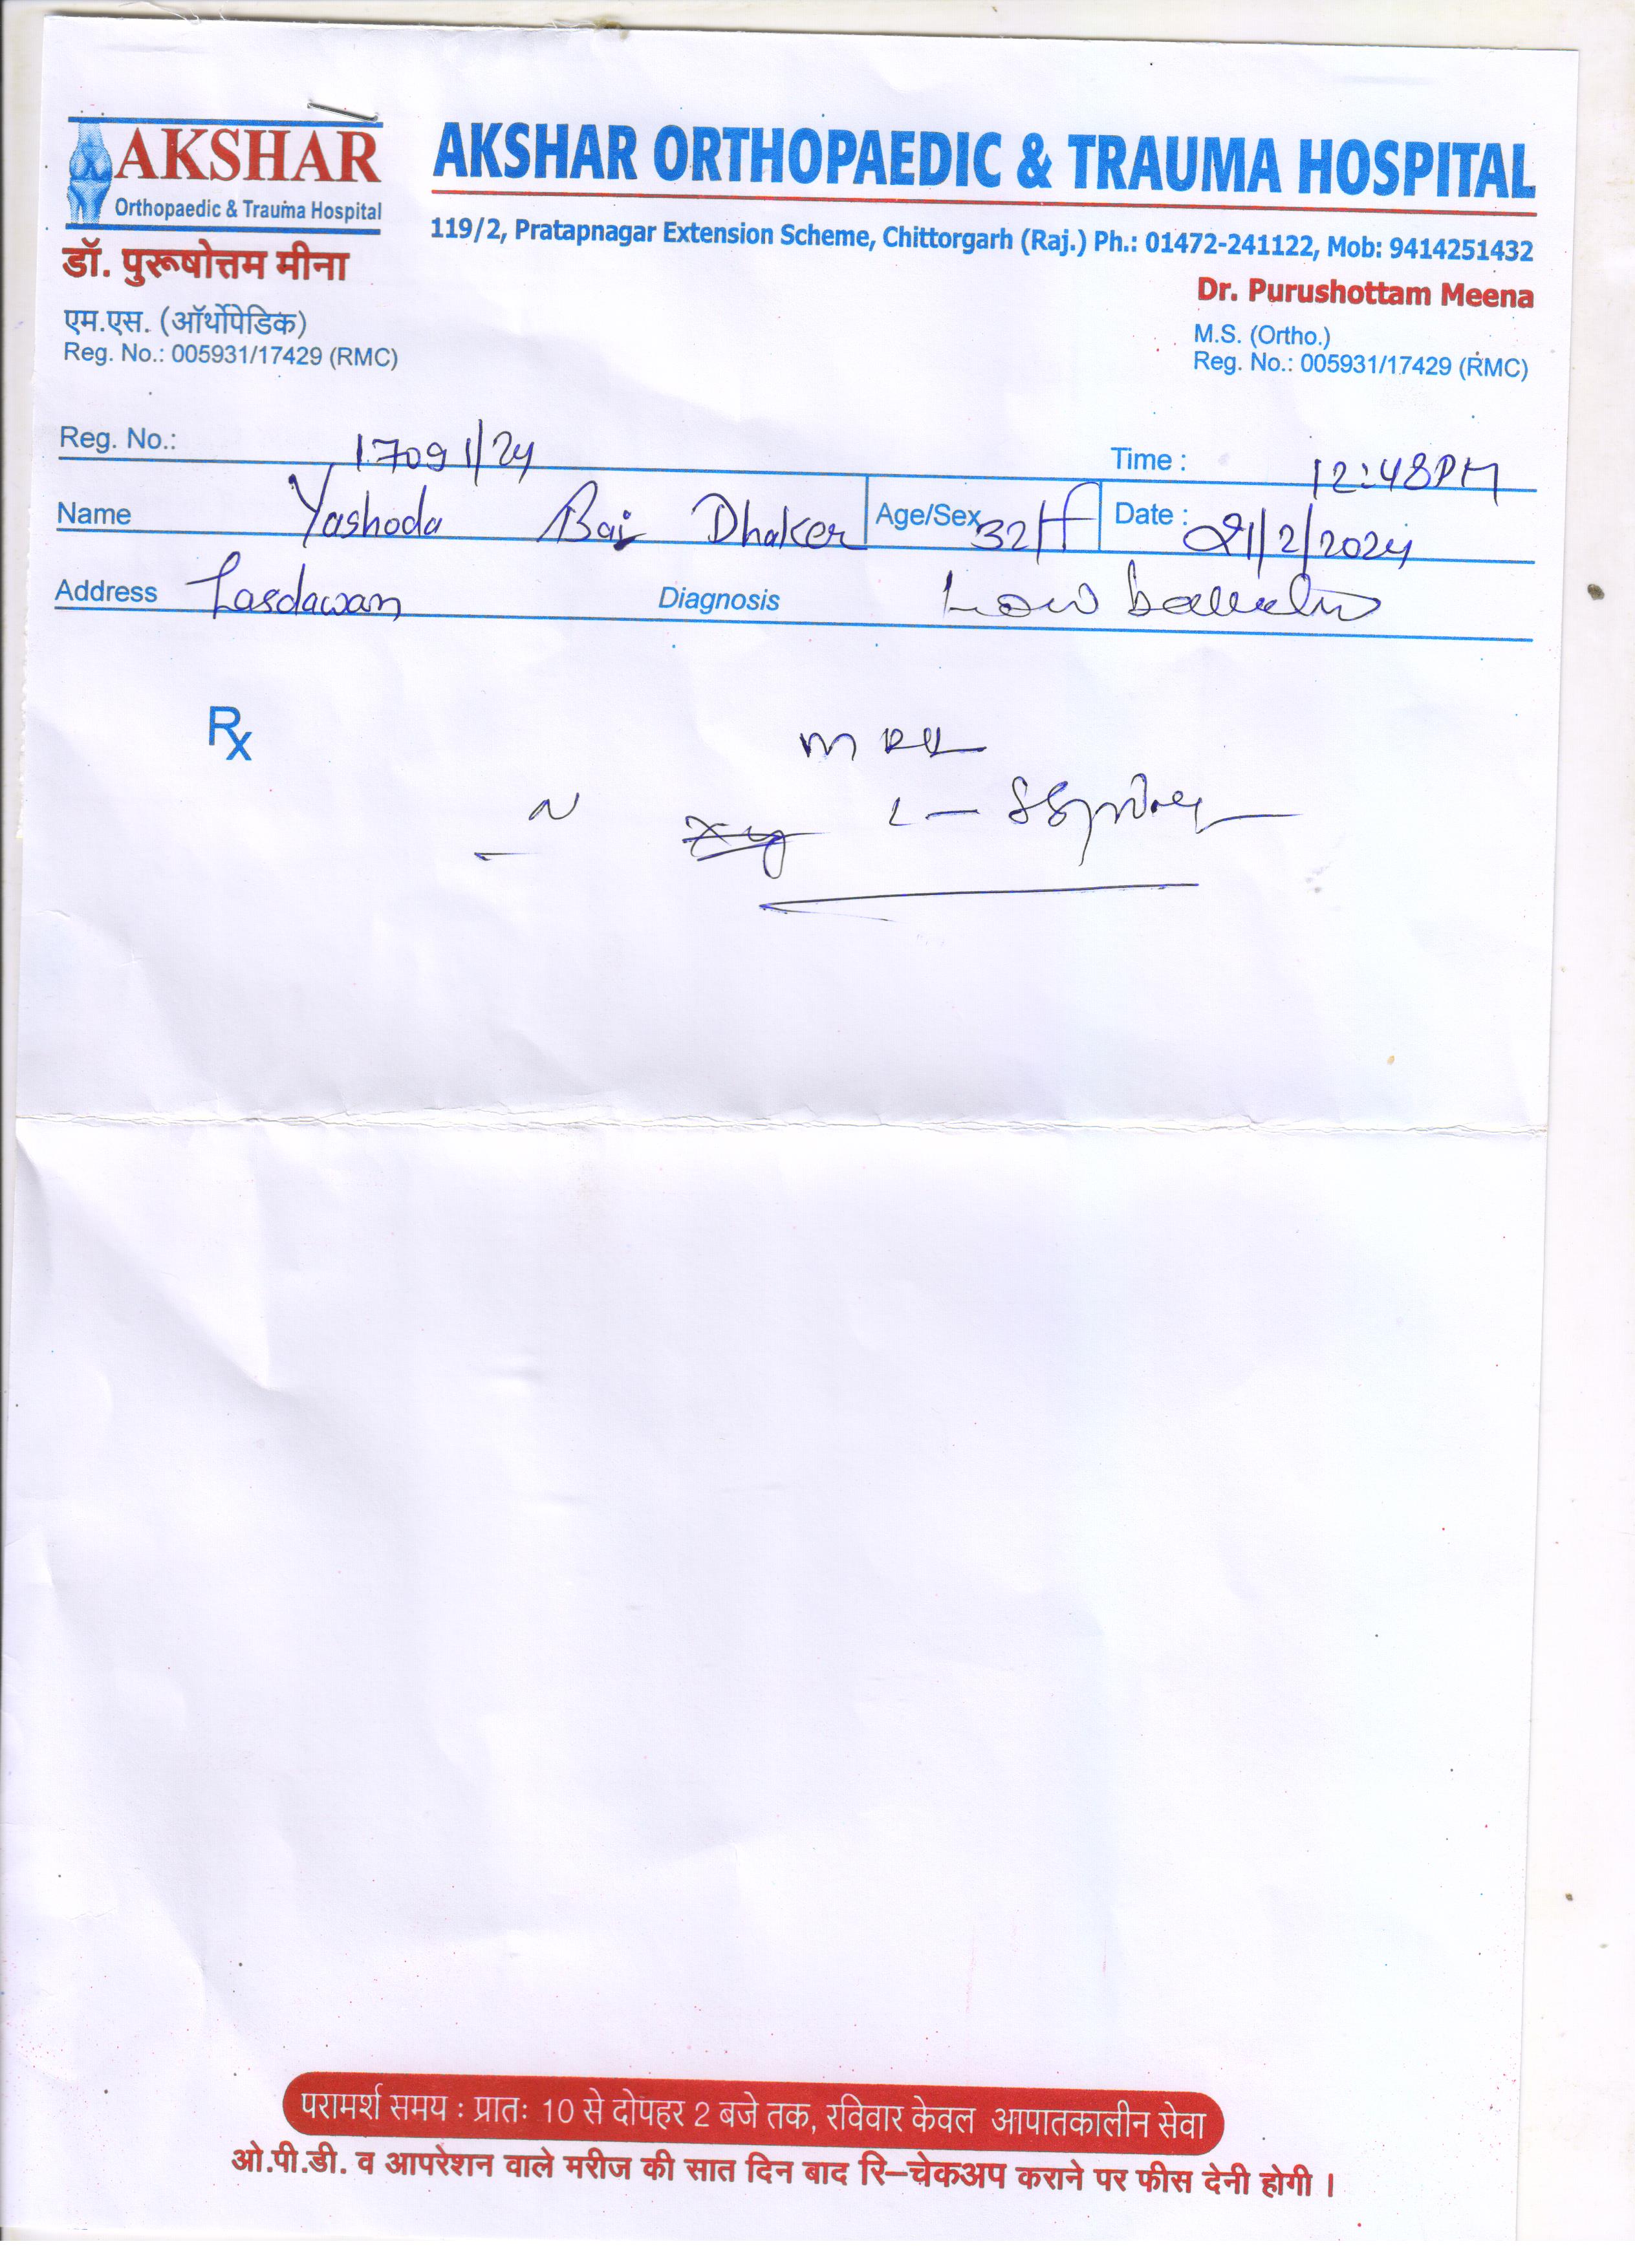 AKSHAR
Orthopaedic & Trauma Hospital
AKSHAR ORTHOPAEDIC & TRAUMA HOSPITAL
119/2, Pratapnagar Extension Scheme, Chittorgarh (Raj.) Ph.: 01472-241122, Mob: 9414251432
डॉ. पुरूषोत्तम मीना
एम.एस. (ऑर्थोपेडिक)
Reg. No.: 005931/17429 (RMC)
Dr. Purushottam Meena
M.S. (Ortho.)
Reg. No.: 005931/17429 (RMC)
Reg. No.: 17091/24 Time : 12:48PM
Name Yashoda Bai Dhaker Age/Sex 32/F Date : 21/2/2024
Address Lasdawan Diagnosis Low
Rx
MRI
L-S Spine
परामर्श समय : प्रातः 10 से दोपहर 2 बजे तक, रविवार केवल आपातकालीन सेवा
ओ.पी.डी. व आपरेशन वाले मरीज की सात दिन बाद रि–चेकअप कराने पर फीस देनी होगी ।